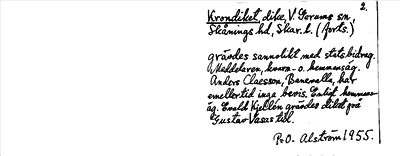 2.
Krondiket, dike, V. Gerums sn,
Skånings hd, Skar. l. (forts.)
grävdes sannolikt med statsbidrag.
Meddelaren, kvarn- o. hemmansäg.
Anders Claesson, Banevalla, har
emellertid inga bevis. Enligt hemmans-
äg. Evald Kjellén grävdes diket på
Gustav Vasas tid.
P.O. Alström 1955.